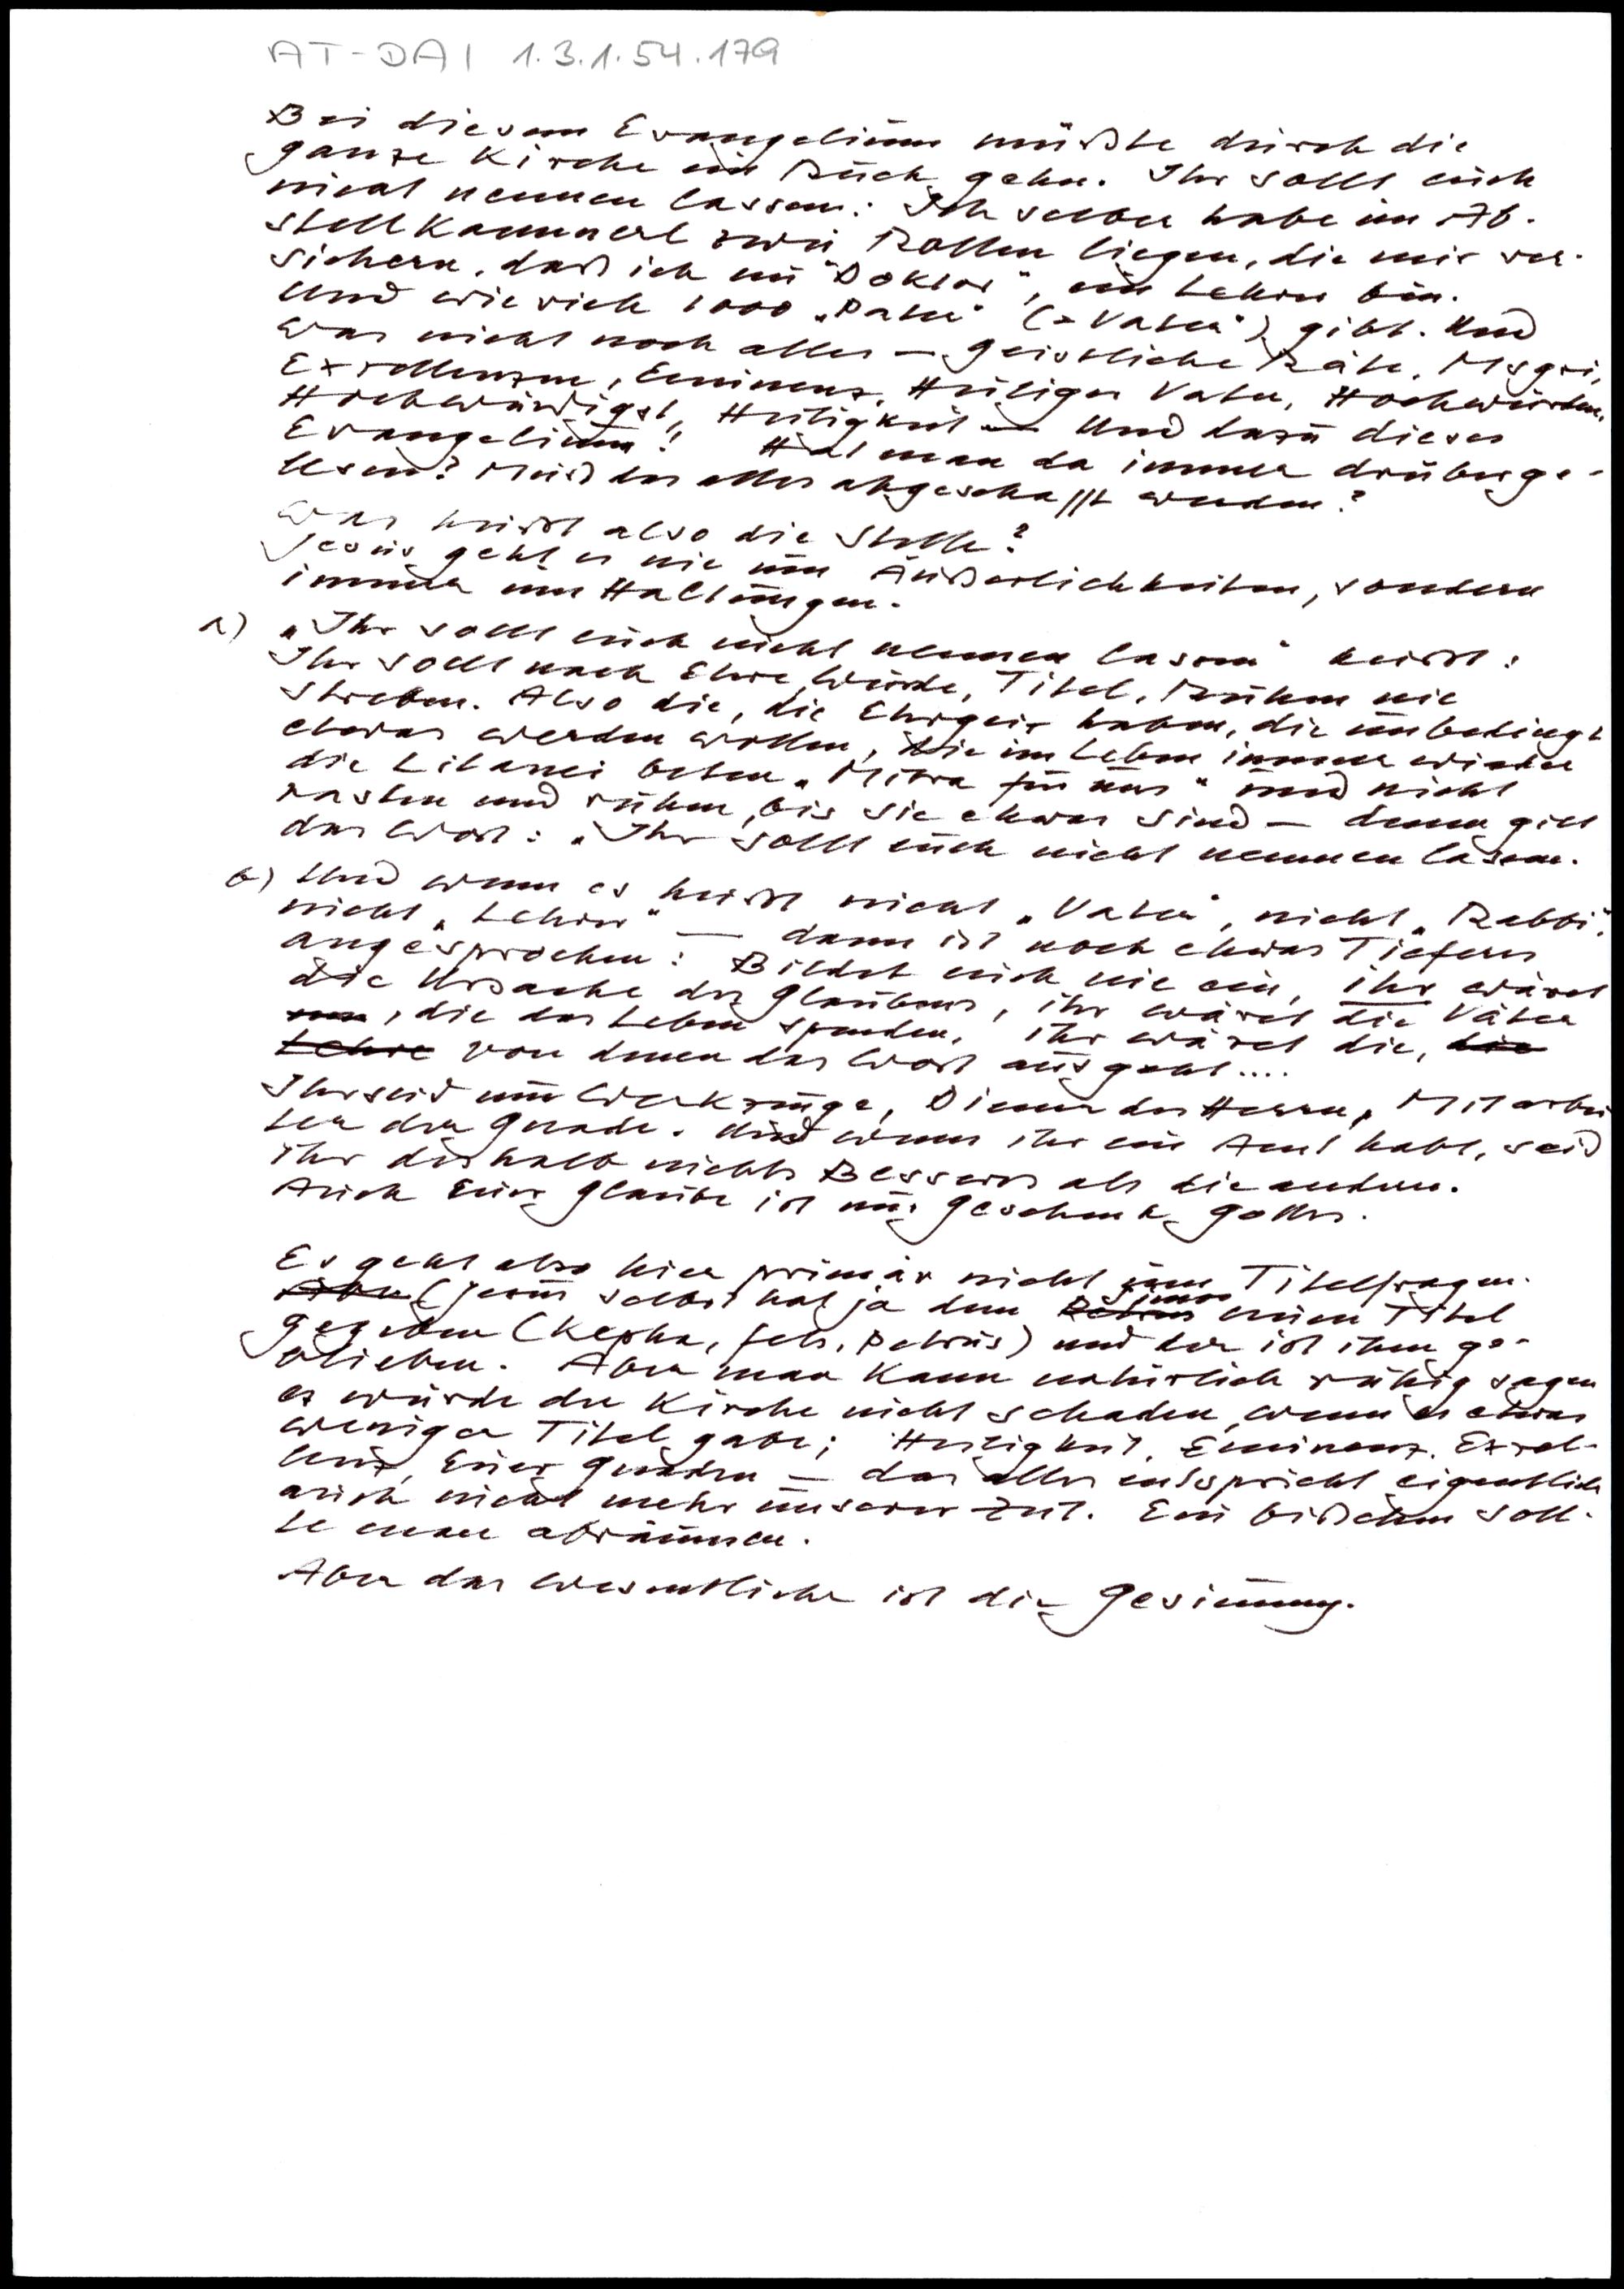 AT-DAI 1.3.1.54.179
Bei diesem Evangelium müßte durch die
ganze Kirche ein Ruck gehn. Ihr sollt euch
nicht nennen lassen: Ich selber habe im Ab-
stellkammerl zwei Rollen liegen, die mir ver-
sichern, daß ich ein "Doktor", ein Lehrer bin.
Und wie viele 1000 „Pater" (= Vater") gibt. Und
was nicht noch alles — Geistliche Räte, Msgri,
Exzellenzen, Eminenz, Heiliger Vater, Hochwürden,
Hochwürdigst, Heiligkeit — Und dazu dieses
Evangelium! Hat man da immer drüberge-
lesen? Muß das alles abgeschafft werden?
Was heißt also die Stelle?
Jesus geht es nie um Äußerlichkeiten, sondern
immer um Haltungen.
a) „Ihr sollt euch nicht nennen lassen" heißt:
Ihr sollt nach Ehre, Würde, Titel, Ruhm nie
streben. Also die, die Ehrgeiz haben, die unbedingt
etwas werden wollen, die im Leben immer wieder
die Litanei beten „Mitra für uns" und nicht
rasten und ruhen, bis sie etwas sind — denen gilt
das Wort: „Ihr sollt euch nicht nennen lassen.
b) Und wenn es heißt nicht „Vater", nicht „Rabbi",
nicht „Lehrer" — dann ist noch etwas Tieferes
angesprochen: Bildet euch nie ein, ihr wäret
die Ursache des Glaubens, ihr wäret die Väter
, die das Leben spenden, ihr wäret die, die
Lehre von denen das Wort ausgeht....
Ihr seid nur Werkzeuge, Diener des Herrn, Mitarbei
ter der Gnade. Und wenn ihr ein Amt habt, seid
ihr deshalb nichts Besseres als die andern.
Auch Euer Glaube ist nur Geschenk Gottes.
Es geht also hier primär nicht um Titelfragen.
(Jesus selbst hat ja dem Petrus Simon einen Titel
gegeben (Kepha, Fels, Petrus) und der ist ihm ge-
blieben. Aber man kann natürlich ruhig sagen
es würde der Kirche nicht schaden, wenn es etwas
weniger Titel gäbe; Heiligkeit, Eminenz, Exzel-
lenz, Euer Gnaden — das alles entspricht eigentlich
auch nicht mehr unserer Zeit. Ein bißchen soll-
te man abräumen.
Aber das Wesentliche ist die Gesinnung.